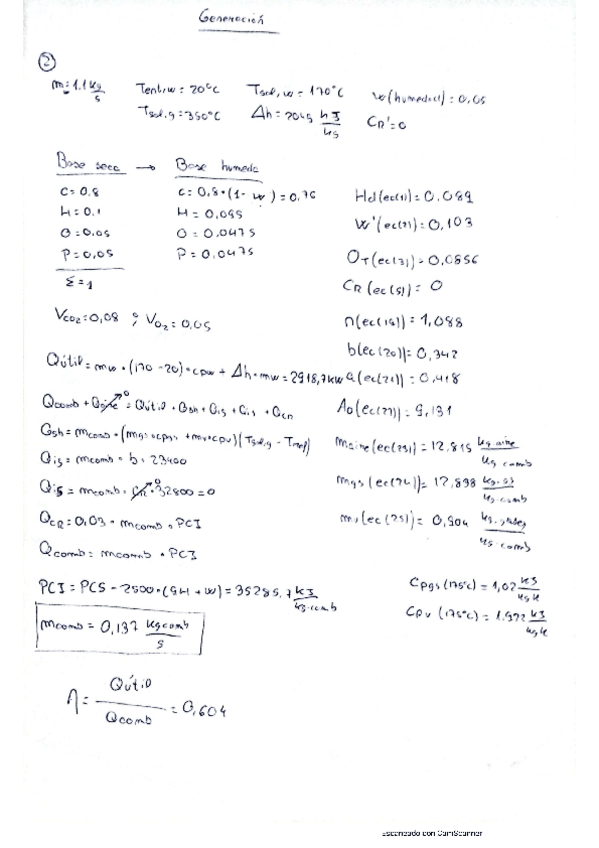 Generación
②
ṁ = 1.1 kg/s   Tent,w = 20°C   Tsal,w = 170°C   w(humedad) = 0.05
Tsal,g = 350°C   Δh = 2045 kJ/kg   CR' = 0
Base seca → Base humeda
C = 0.8   C = 0.8·(1-w) = 0.76   Hd(ec(1)) = 0.089
H = 0.1   H = 0.095   W'(ec(2)) = 0,103
O = 0.05   O = 0.0475   OT(ec(3)) = 0,0856
P = 0.05   P = 0.0475   CR(ec(5)) = 0
Σ = 1
VCO2 = 0,08 ; VO2 = 0,05   n(ec(19)) = 1,088
b(ec(20)) = 0,342
Qútil = mw·(170-20)·cpw + Δh·mw = 2918,7kW   a(ec(21)) = 0,418
Qcomb + Qaire = Qútil + Qsh + Qis + Qis + QCR   Ao(ec(22)) = 9,131
0
Qsh = mcomb·(mgs·cpgs + mv·cpv)(Tsal,g - Tref)   maire(ec(23)) = 12,815 kg.aire/kg comb
Qis = mcomb·b·23400   mgs(ec(24)) = 12,838 kg.gs/kg.comb
Qis = mcomb·CR·32800 = 0   mv(ec(25)) = 0,904 kg.gases/kg.comb
QCR = 0,03·mcomb·PCI
Qcomb = mcomb·PCI
PCI = PCS - 2500·(9H + W) = 35285,7 kJ/kg.comb   Cpgs(175°C) = 1,02 kJ/kgK
mcomb = 0,137 kg comb/s   Cpv(175°C) = 1.972 kJ/kgK
η = Qútil/Qcomb = 0,604
Escaneado con CamScanner